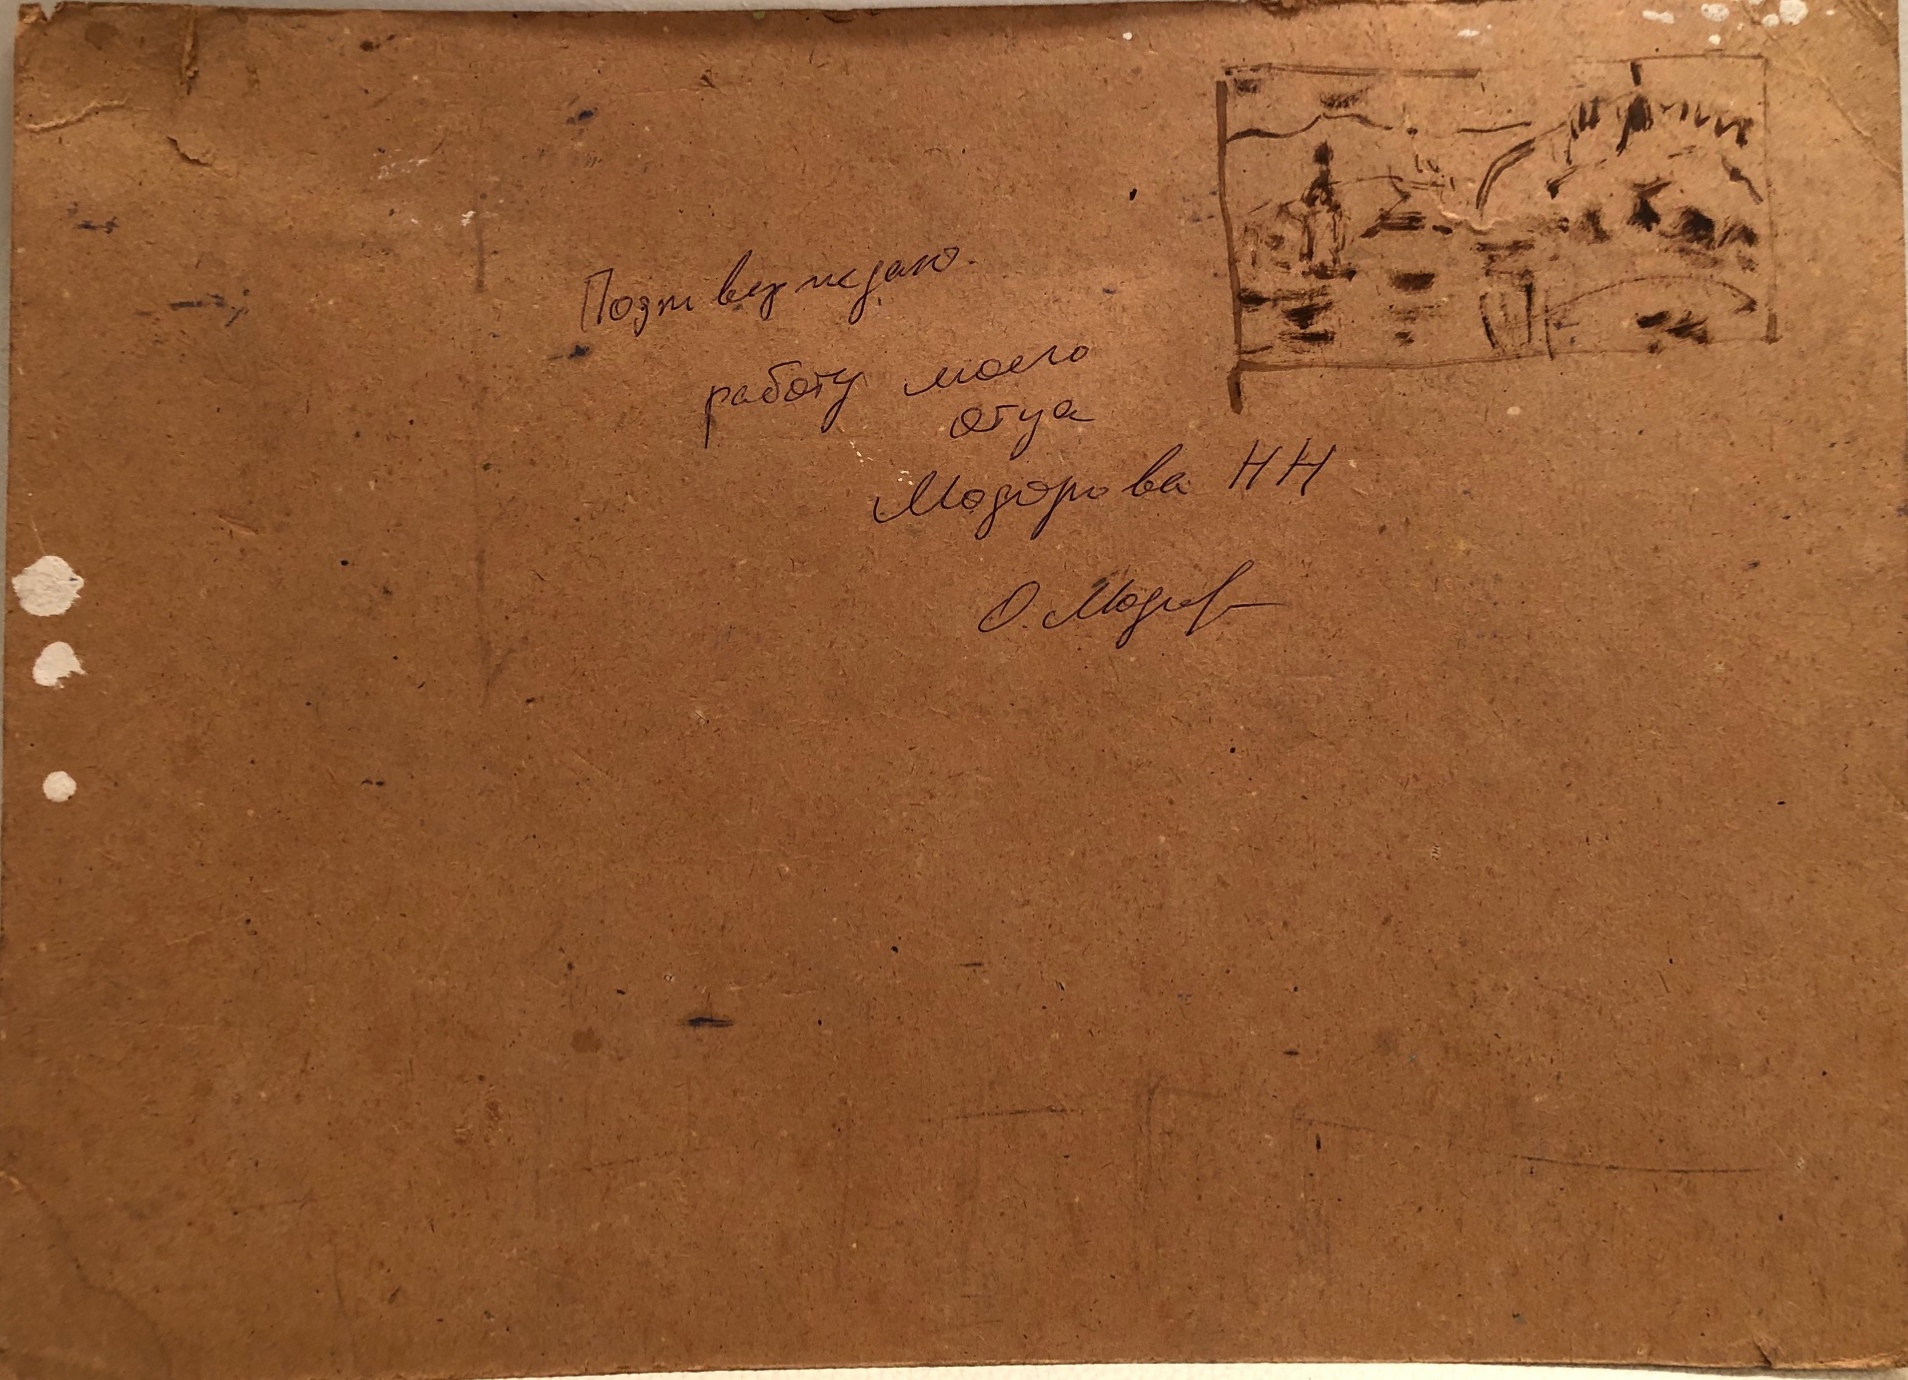 Подтверждаю
работу моего
отца
Модорова НН
О. Модоров